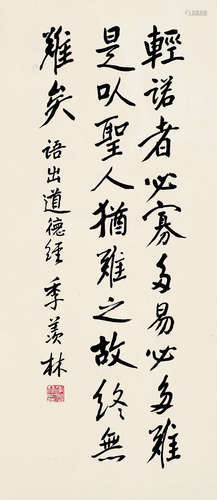 輕諾者必寡多易必多難
是以聖人猶難之故終無
難矣 語出道德經 季羨林